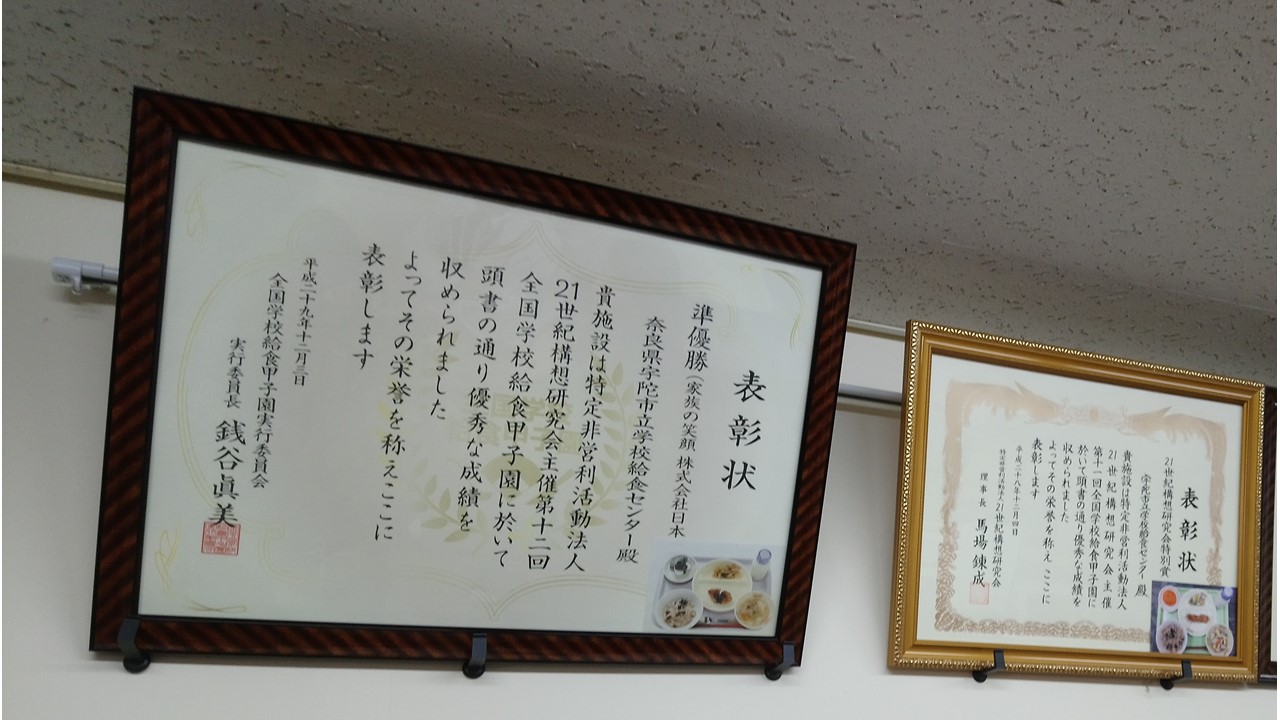 表彰状
準優勝(家族の笑顔 株式会社日本
奈良県宇陀市立学校給食センター 殿
貴施設は特定非営利活動法人
21世紀構想研究会主催第十二回
全国学校給食甲子園に於いて
頭書の通り優秀な成績を
収められました
よってその栄誉を称えここに
表彰します
平成二十九年十二月三日
全国学校給食甲子園実行委員会
実行委員長 銭谷眞美
表彰状
21世紀構想研究会特別賞
宇陀市立学校給食センター 殿
貴施設は特定非営利活動法人
21世紀構想研究会主催
第十一回全国学校給食甲子園に
於いて頭書の通り優秀な成績を
収められました
よってその栄誉を称え ここに
表彰します
平成二十八年十二月四日
特定非営利活動法人21世紀構想研究会
理事長 馬場錬成